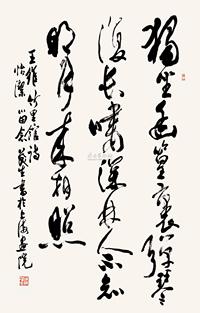 獨坐幽篁裏彈琴
復長嘯深林人不知
明月來相照
王維竹里館詩
留念 書於上海畫院